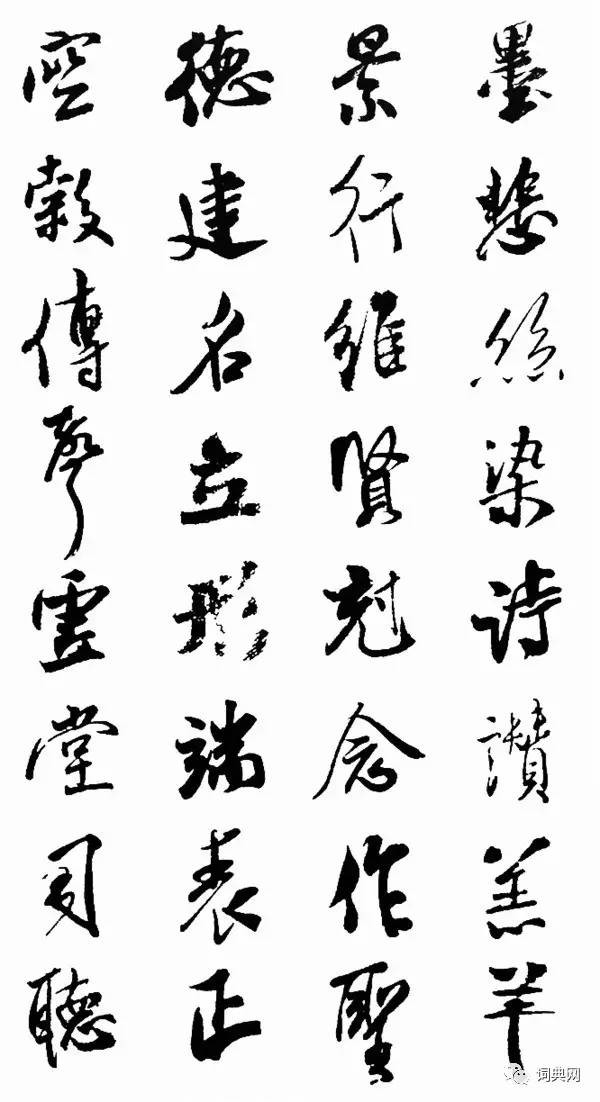 墨悲絲染詩讚羔羊
景行維賢尅念作聖
德建名立形端表正
空穀傳聲虛堂習聽
词典网